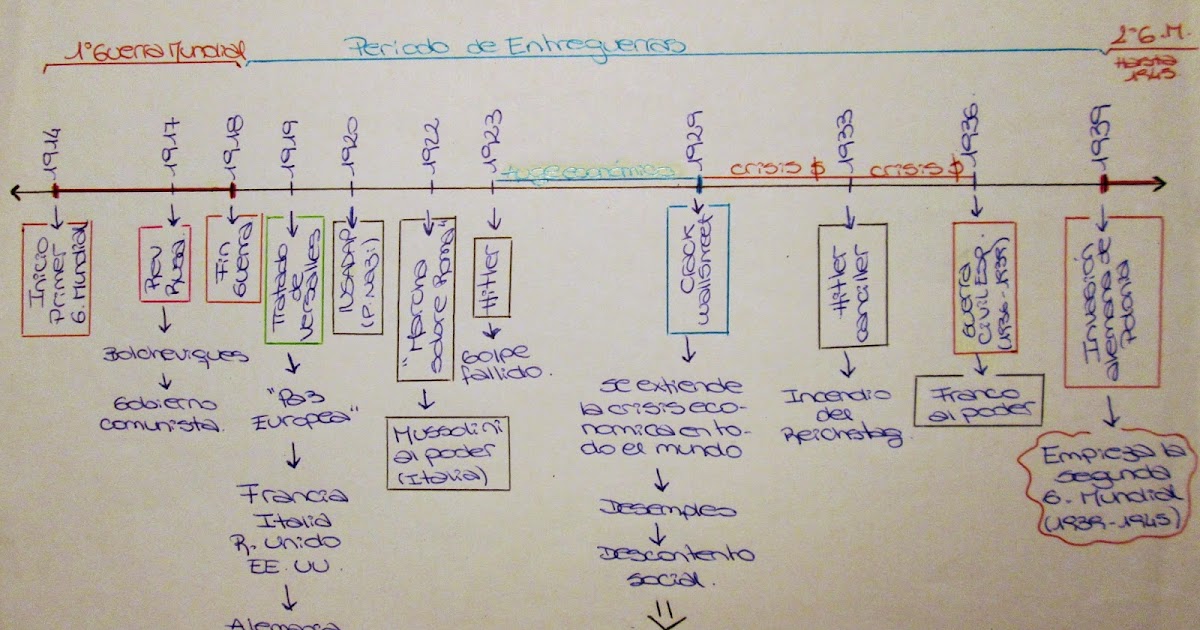 1º Guerra Mundial
Periodo de Entreguerras
2º G.M.
Hasta
1945
1914
1917
1918
1919
1920
1922
1923
1929
1933
1936
1939
Auge económico
crisis $
crisis $
Inicio
Primer
G. Mundial
Rev
Rusa.
Fin
Guerra
Tratado
de
Versalles
NSADAP
(P. NAZI)
"Marcha
sobre Roma"
Hitler
Crack
wallstreet
Hitler
canciller
Guerra
Civil Esp.
(1936-1939)
Invasión
alemana de
Polonia
Bolcheviques
Gobierno
comunista.
"Paz
Europea"
Francia
Italia
R. Unido
EE.UU.
Alemania
Mussolini
al poder
(Italia)
Golpe
fallido.
se extiende
la crisis eco-
nomica en to-
do el mundo
Desempleo
Descontento
social.
Incendio
del
Reichstag.
Franco
al poder
Empieza la
segunda
G. Mundial
(1939-1945)